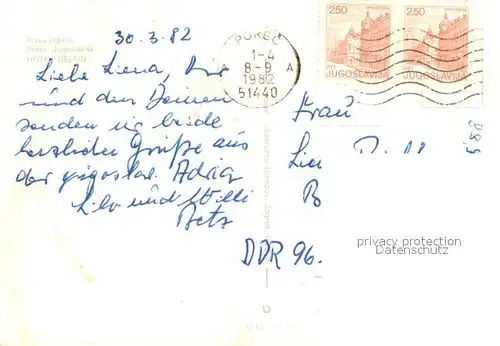 30.3.82
Hotel Jugoslavia
HOTEL DELFIN
Liebe Liena, Dir
und den Deinen
senden wir beide
herzliche Grüße aus
der jugoslav. Adria
Lilo und Willi
Betz
POREČ
1-4
8-9 A
1982
51440
2.50 2.50
JUGOSLAVIJA JUGOSLAVIJA
Frau
B
DDR 96.
privacy protection
Datenschutz